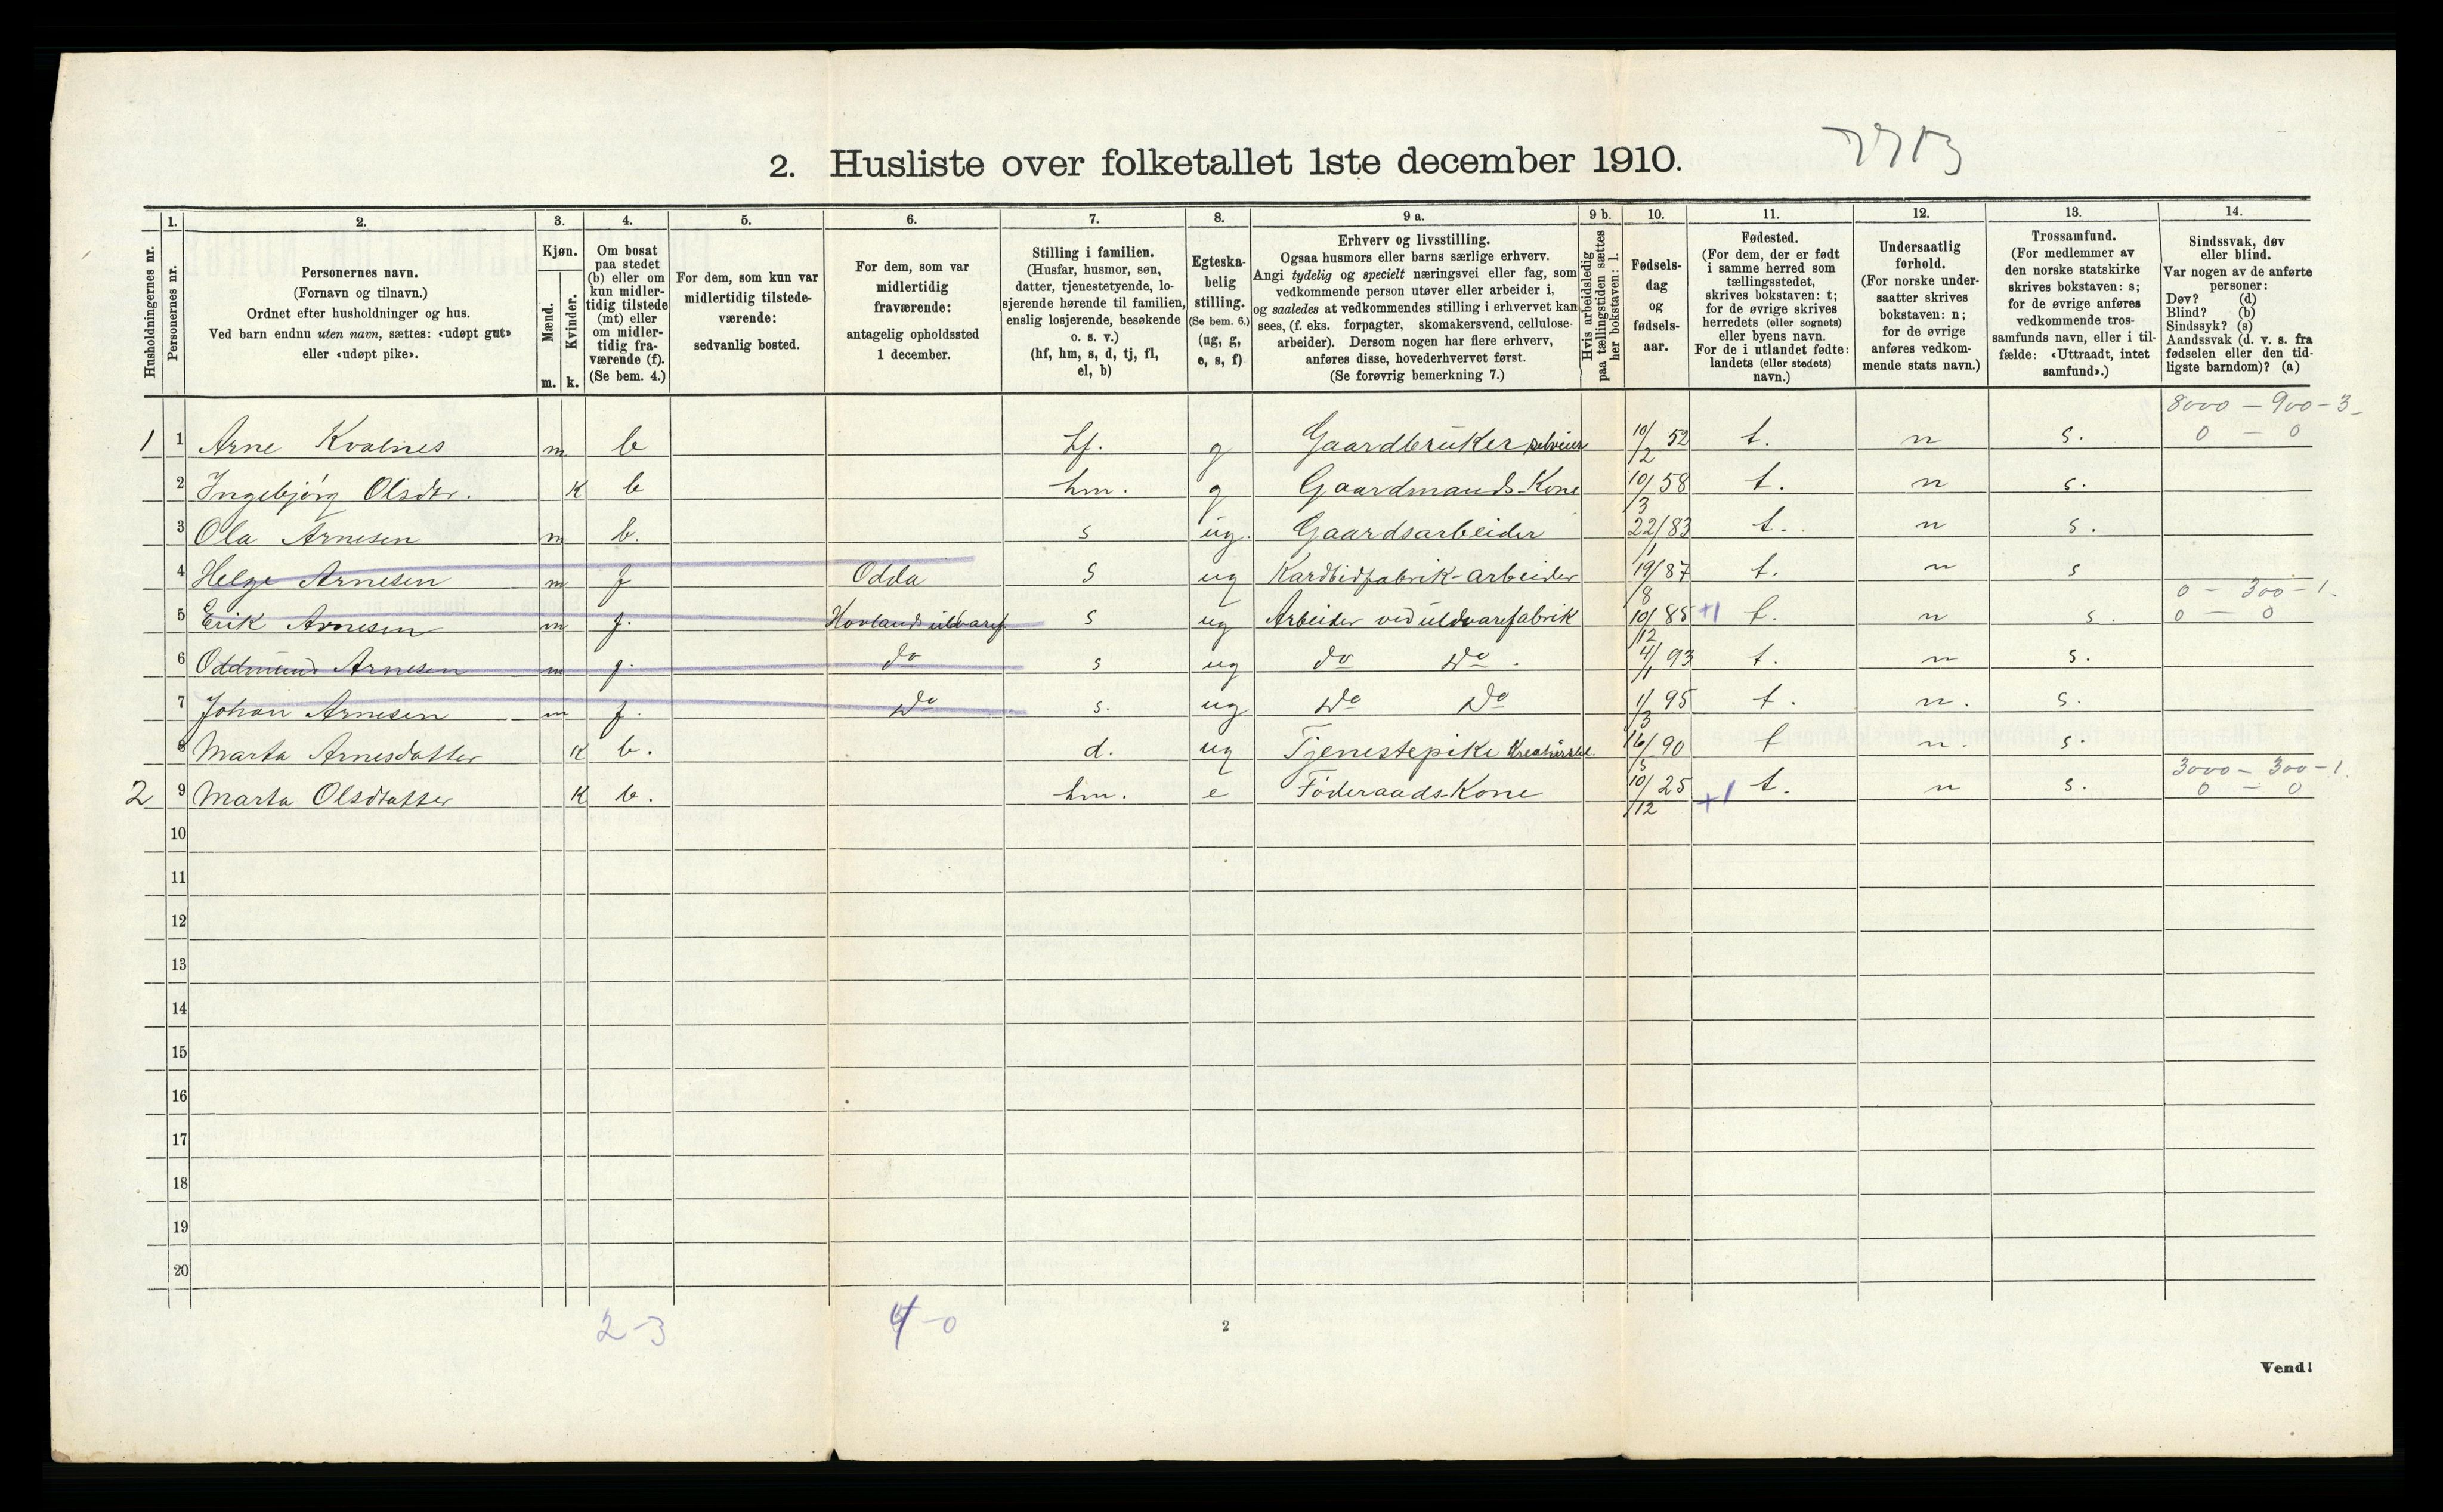 2. Husliste over folketallet 1ste december 1910.
Husholdningernes nr.
1.
Personernes nr.
2.
Personernes navn.
(Fornavn og tilnavn.)
Ordnet efter husholdninger og hus.
Ved barn endnu uten navn, sættes: «udøpt gut»
eller «udøpt pike».
3.
Kjøn.
Mænd.
Kvinder.
m. k.
4.
Om bosat
paa stedet
(b) eller om
kun midler-
tidig tilstede
(mt) eller
om midler-
tidig fra-
værende (f).
(Se bem. 4.)
5.
For dem, som kun var
midlertidig tilstede-
værende:
sedvanlig bosted.
6.
For dem, som var
midlertidig
fraværende:
antagelig opholdssted
1 december.
7.
Stilling i familien.
(Husfar, husmor, søn,
datter, tjenestetyende, lo-
sjerende hørende til familien,
enslig losjerende, besøkende
o. s. v.)
(hf, hm, s, d, tj, fl,
el, b)
8.
Egteska-
belig
stilling.
(Se bem. 6.)
(ug, g,
e, s, f)
9 a.
Erhverv og livsstilling.
Ogsaa husmors eller barns særlige erhverv.
Angi tydelig og specielt næringsvei eller fag, som
vedkommende person utøver eller arbeider i,
og saaledes at vedkommendes stilling i erhvervet kan
sees, (f. eks. forpagter, skomakersvend, cellulose-
arbeider). Dersom nogen har flere erhverv,
anføres disse, hovederhvervet først.
(Se forøvrig bemerkning 7.)
9 b.
Hvis arbeidsledig
paa tællingstiden sættes
her bokstaven: l.
10.
Fødsels-
dag
og
fødsels-
aar.
11.
Fødested.
(For dem, der er født
i samme herred som
tællingsstedet,
skrives bokstaven: t;
for de øvrige skrives
herredets (eller sognets)
eller byens navn.
For de i utlandet fødte:
landets (eller stedets)
navn.)
12.
Undersaatlig
forhold.
(For norske under-
saatter skrives
bokstaven: n;
for de øvrige
anføres vedkom-
mende stats navn.)
13.
Trossamfund.
(For medlemmer av
den norske statskirke
skrives bokstaven: s;
for de øvrige anføres
vedkommende tros-
samfunds navn, eller i til-
fælde: «Uttraadt, intet
samfund».)
14.
Sindssvak, døv
eller blind.
Var nogen av de anførte
personer:
Døv? (d)
Blind? (b)
Sindssyk? (s)
Aandssvak (d. v. s. fra
fødselen eller den tid-
ligste barndom)? (a)
8000 - 900 - 3
1 1 Arne Kvalnes m b hf. g Gaardbruker selveier 10/2 52 t. n s. 0 - 0
2 Ingebjørg Olsdtr. K b hm. g Gaardmands-Kone 10/3 58 t. n s.
3 Ola Arnesen m b. s ug. Gaardsarbeider 22/1 83 t. n s.
4 Helge Arnesen m f Odda s ug Kardbidfabrik-arbeider 19/8 87 t. n s
0 - 300 - 1.
5 Erik Arnesen m f. Hovlands uldvaref s ug Arbeider ved uldvarefabrik 10/12 85 +1 t. n s. 0 - 0
6 Oddmund Arnesen m f. do s ug do do. 4/1 93 t. n s.
7 Johan Arnesen m f. do s. ug do do 1/3 95 t. n. s.
8 Marta Arnesdatter K b. d. ug Tjenestepike Kreaturstel. 16/5 90 t n. s.
3000 - 300 - 1.
2 9 Marta Olsdtatter K b. hm. e Føderaads-Kone 10/12 25 +1 t. n s. 0 - 0
10
11
12
13
14
15
16
17
18
19
20
2-3 4-0
2
Vend!